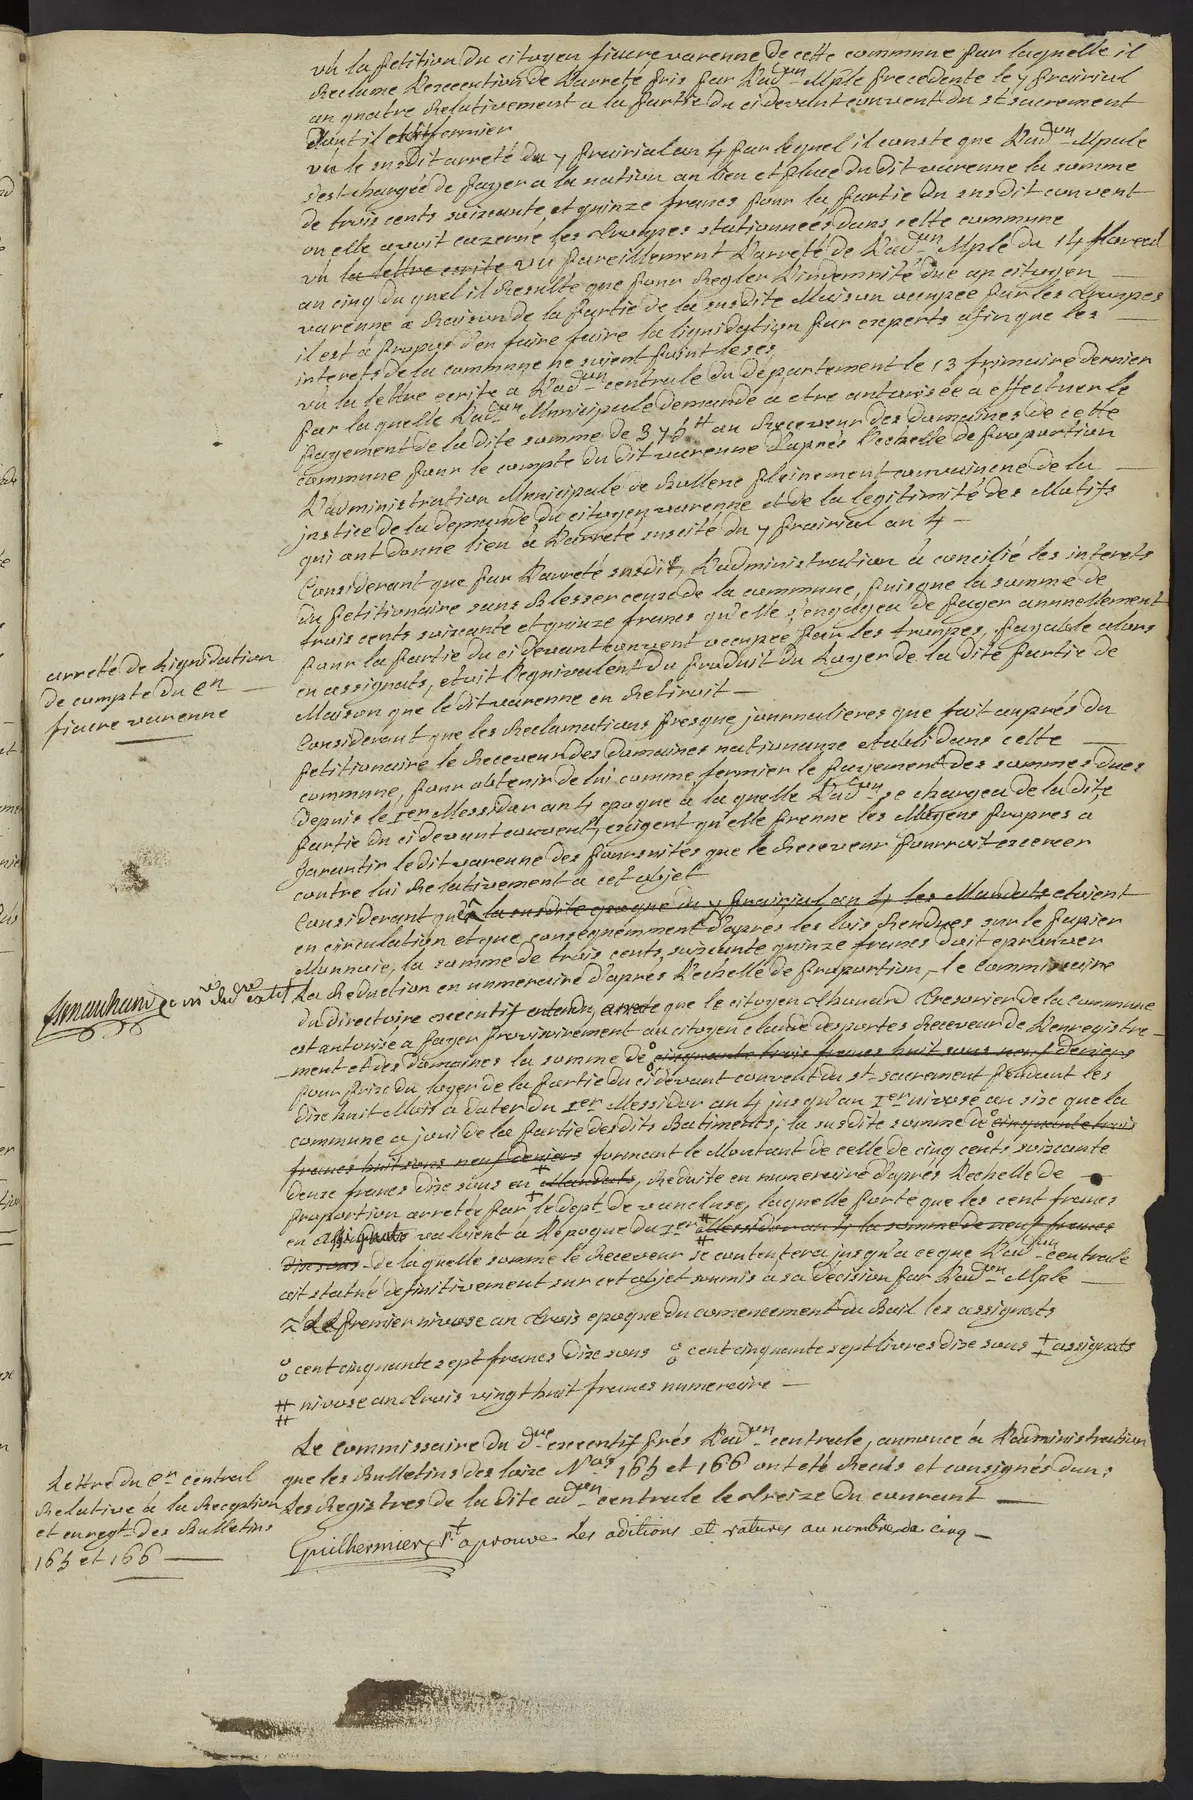 vû la petition du citoyen fiacre varenne de cette commune par laquelle il
Reclame L'execution de L'arreté pris par L'adon Mple precedente le 7 prairial
an quatre Relativement a la partie du ci devant convent du st sacrement
dont il etoit fermier
vû le susdit arreté du 7 prairial an 4 par lequel il conste que L'adon Mpale
s'est chargée de payer a la nation au lieu et place du dit varenne la somme
de trois cents soixante et quinze francs pour la partie du susdit convent
ou elle avoit cazerné les Troupes stationneés dans cette commune
vû la lettre ecrite vû pareillement L'arreté de L'adon Mple du 14 floreal
an cinq du quel il Resulte que pour Regler L'indemnité dûe au citoyen
varenne a Raison de la partie de la susdite Maison occupée par les Troupes
il est á propos d'en faire faire la liquidation par experts afin que les
interets de la commune ne soient point leses
vû la lettre ecrite a L'adon centrale du département le 13 frimaire dernier
par la quelle L'adon Municipale demande a etre autorisée a effectuer le
payement de la dite somme de 375tt au Receveur des domaines de cette
commune pour le compte du dit varenne d'aprés L'echelle de proportion
L'administration Municipale de Bollene pleinement convaincue de la
justice de la demande du citoyen varenne et de la legitimité des Motifs
qui ont donne lieu à L'arreté suscité du 7 prairial an 4 —
Considerant que par L'arreté susdit, L'administration á concilié les interets
du petitionaire sans Blesser ceux de la commune, puisque la somme de
trois cents soixante et quinze francs qu'elle s'engagea de payer annuellement
pour la partie du ci devant convent occupée par les troupes, payable alors
en assignats, etoit l'equivalent du produit du Loyer de la dite partie de
Maison que le dit varenne en Retiroit —
Considerant que les Reclamations presque journalieres que fait auprés du
petitionaire le Receveur des domaines nationaux etabli dans cette
commune, pour obtenir de lui comme fermier le payement des sommes dues
depuis le 1er Messidor an 4 epoque a la quelle L'adon se chargea de la dite
partie du ci devant convent, exigent qu'elle prenne les Moyens propres a
garantir le dit varenne des poursuites que le Receveur pourroit exercer
contre lui Relativement a cet objet
Considerant qu'a la susdite epoque du 7 prairial an 4 les Mandats etoient
en circulation et que consequemment d'apres les lois Rendues sur le papier
Monnoie, la somme de trois cents soixante quinze francs doit eprouver
La Reduction en numeraire d'aprés L'echelle de proportion, — le Commissaire
du directoire executif entendu, arrete que le citoyen Thouard Tresorier de la commune
est autorisé a payer provisoirement au citoyen claude desportes Receveur de L'enregistre-
ment et des domaines la somme de cinquante trois francs huit sous neuf deniers
pour prix du loyer de la partie du ci devant convent du st sacrement pendant les
dix huit Mois a dater du 1er Messidor an 4 jusqu'au 1er nivose an six que la
commune a joui de la partie desdits Batiments, la susdite somme de cinquante trois
francs huit sous neuf deniers formant le Montant de celle de cinq cents soixante
deux francs dix sous en Mandats, Reduite en numeraire d'aprés L'echelle de
proportion arretée par le dept de vaucluse, laquelle porte que les cent francs
en assignats valoient a L'epoque du 1er Messidor an 4 la somme de neuf francs
dix sous de laquelle somme le Receveur se contentera jusqu'a ce que L'adon centrale
ait statué definitivement sur cet objet soumis a sa decision par L'adon Mple
Le premier nivose an trois epoque du comencement du Bail les assignats
cent cinquante sept francs dix sous cent cinquante sept livres dix sous + assignats
nivose an trois vingt huit francs numeraire —
arreté de Liquidation
de compte du Cn
fiacre varenne
Le commissaire du dre executif prés L'adon centrale, annonce á L'administration
que les Bulletins des loix Nos 165 et 166 ont eté Recus et consignés dans
Les Registres de la dite adon centrale le treize du courant —
Lettre du Cn central
Relative á la Reception
et enregt des Bulletins
165 et 166 —
Guilhermier pt aprouve Les aditions et ratures au nombre de cinq —